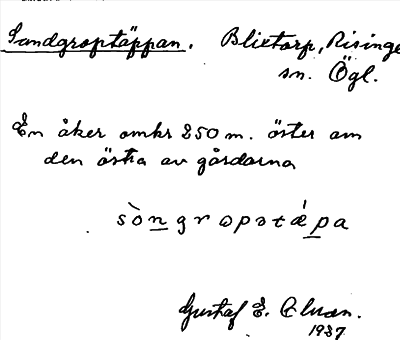 Sandgroptäppan. Blixtorp, Risinge
sn. Ögl.
En åker omkr 250 m. öster om
den östra av gårdarna
sòngropstǽpa
Gustaf E.
1937